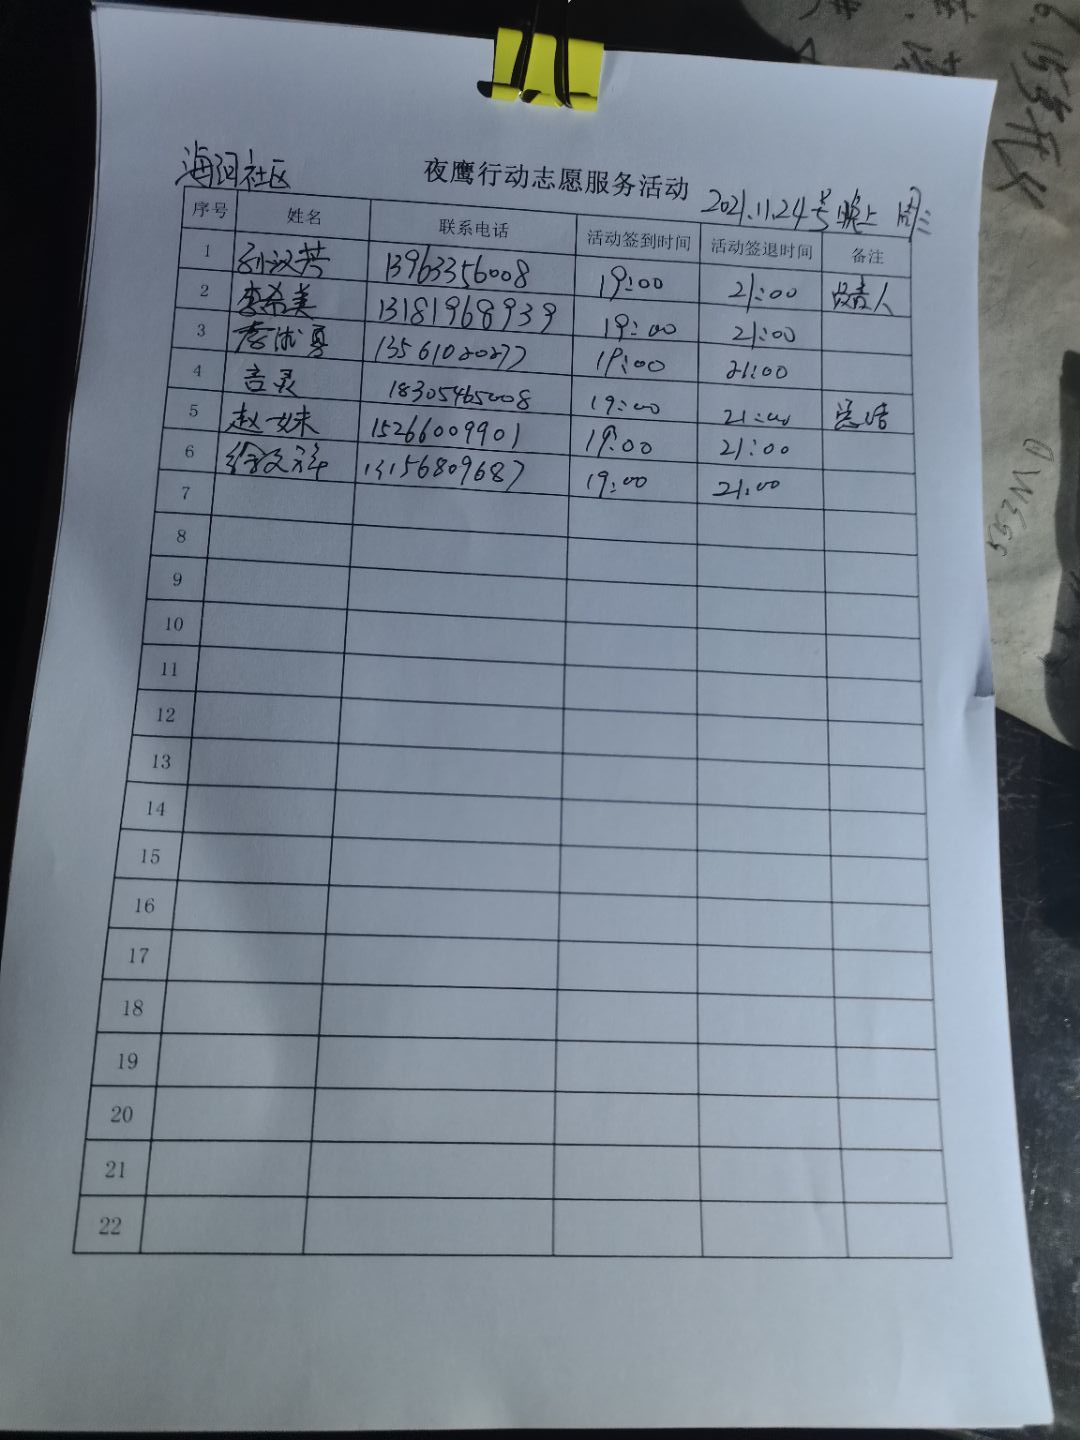 海河社区 夜鹰行动志愿服务活动 2021.11.24号晚上 周三
序号 姓名 联系电话 活动签到时间 活动签退时间 备注
1 孙汉芳 13963356008 19:00 21:00 负责人
2 李希美 13181968939 19:00 21:00
3 李淑粤 13561020277 19:00 21:00
4 言灵 18305465008 19:00 21:00 总结
5 赵一妹 15266009901 19:00 21:00
6 徐文祥 13156809687 19:00 21:00
7
8
9
10
11
12
13
14
15
16
17
18
19
20
21
22